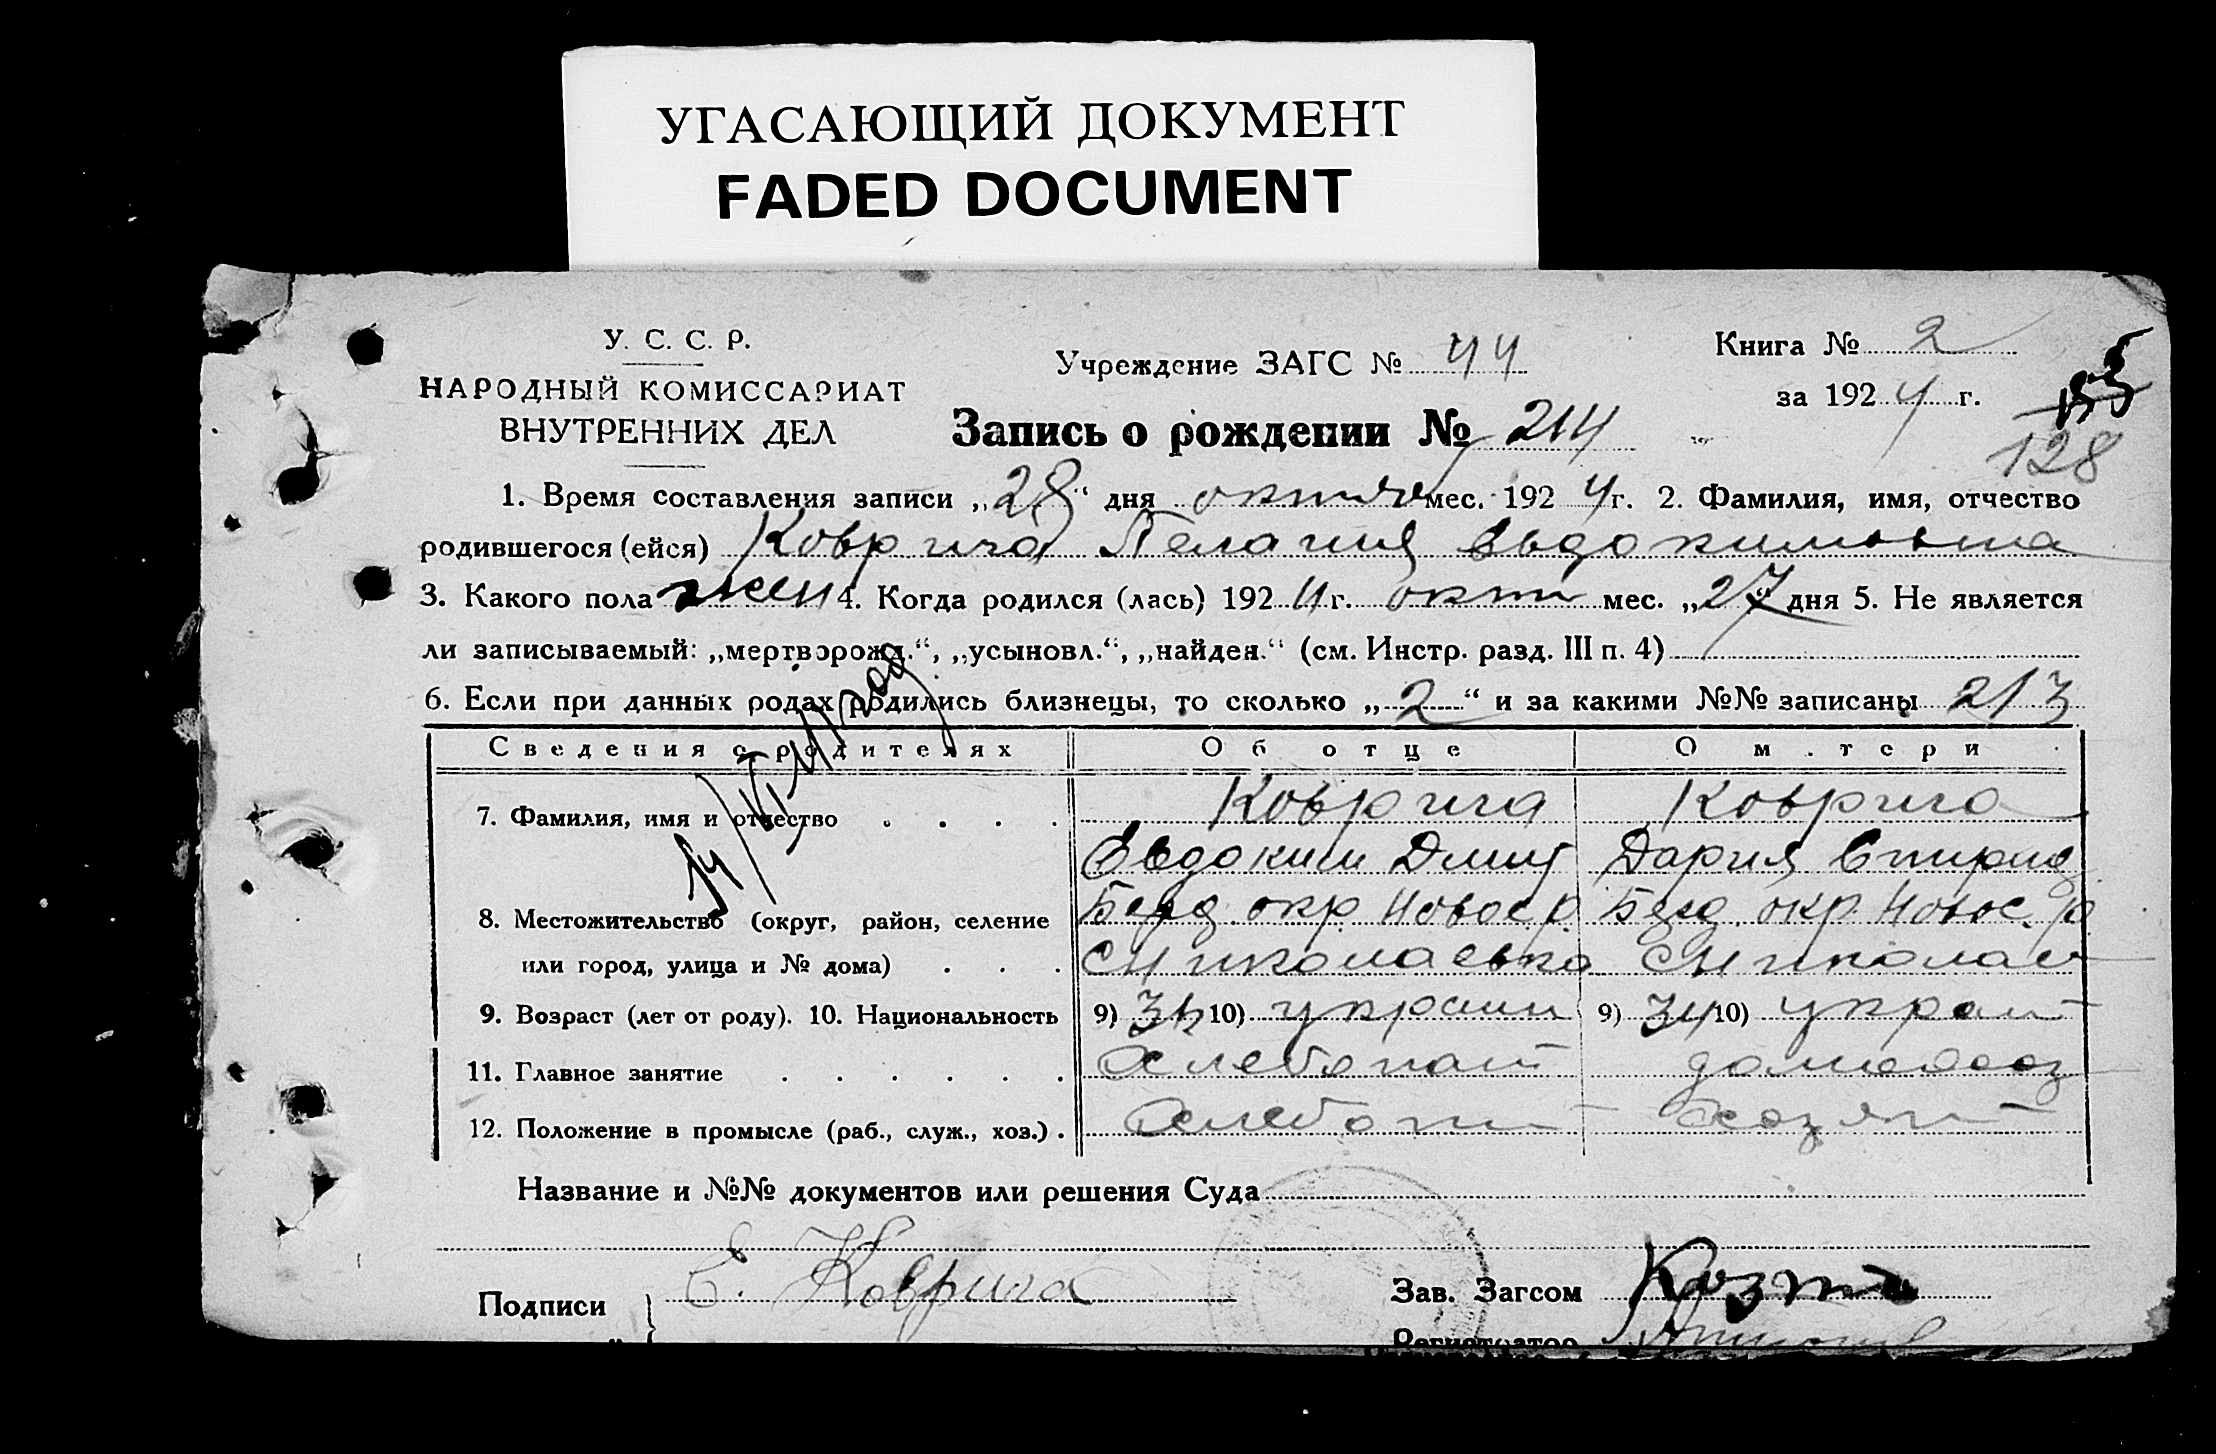 УГАСАЮЩИЙ ДОКУМЕНТ
FADED DOCUMENT
У. С. С. Р.
НАРОДНЫЙ КОМИССАРИАТ
ВНУТРЕННИХ ДЕЛ
Учреждение ЗАГС № 44
Книга № 2
за 1924 г.
128
Запись о рождении № 214
1. Время составления записи „28“ дня октяб мес. 1924 г. 2. Фамилия, имя, отчество
родившегося (ейся) Коврига Пелагия Евдокимовна
3. Какого пола жен 4. Когда родился (лась) 1924 г. окт мес. „27“ дня 5. Не является
ли записываемый: „мертворожд.“, „усыновл.“, „найден.“ (см. Инстр. разд. III п. 4)
6. Если при данных родах родились близнецы, то сколько „2“ и за какими №№ записаны 213
Сведения о родителях Об отце О матери
7. Фамилия, имя и отчество . . . . Коврига Коврига
Евдоким Дмит Дария Спирид
8. Местожительство (округ, район, селение Берд. окр. Новос. р. Берд. окр. Новос. р
или город, улица и № дома) . . . с Николаевка с Николаев
9. Возраст (лет от роду). 10. Национальность 9) 10) украин 9) 34 10) украин
11. Главное занятие . . . . . . Хлебопаш домохоз
12. Положение в промысле (раб., служ., хоз.) . Хлебоп хозяй
Название и №№ документов или решения Суда
Подписи Е. Коврига Зав. Загсом
Регистратор